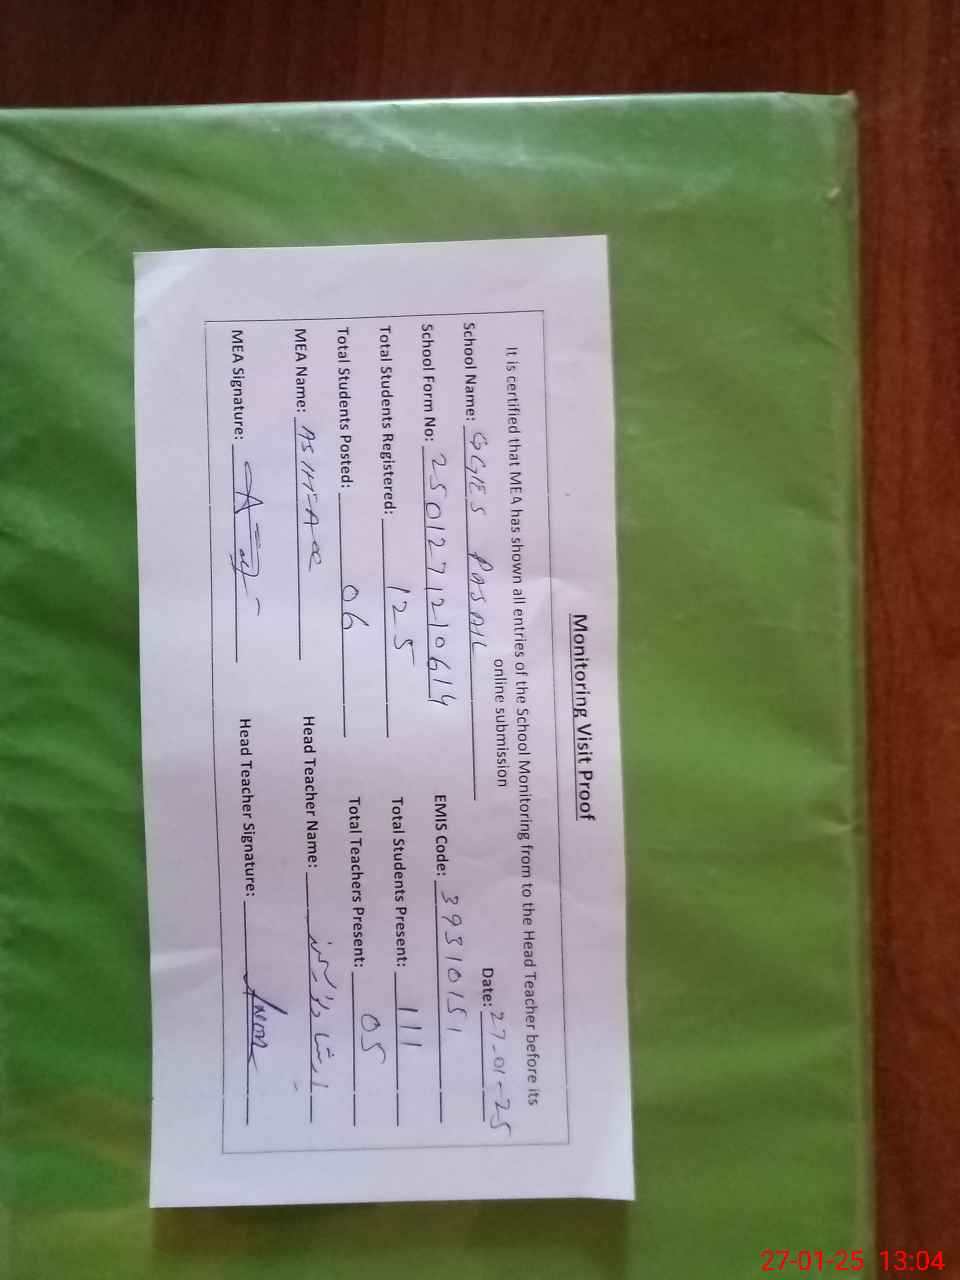 Monitoring Visit Proof
It is certified that MEA has shown all entries of the School Monitoring from to the Head Teacher before its
online submission
Date: 27-01-25
School Name: GGES PASAIL
School Form No: 250127120614 EMIS Code: 39310151
Total Students Registered: 125 Total Students Present: 111
Total Students Posted: 06 Total Teachers Present: 05
MEA Name: Head Teacher Name:
MEA Signature: Head Teacher Signature:
27-01-25 13:04